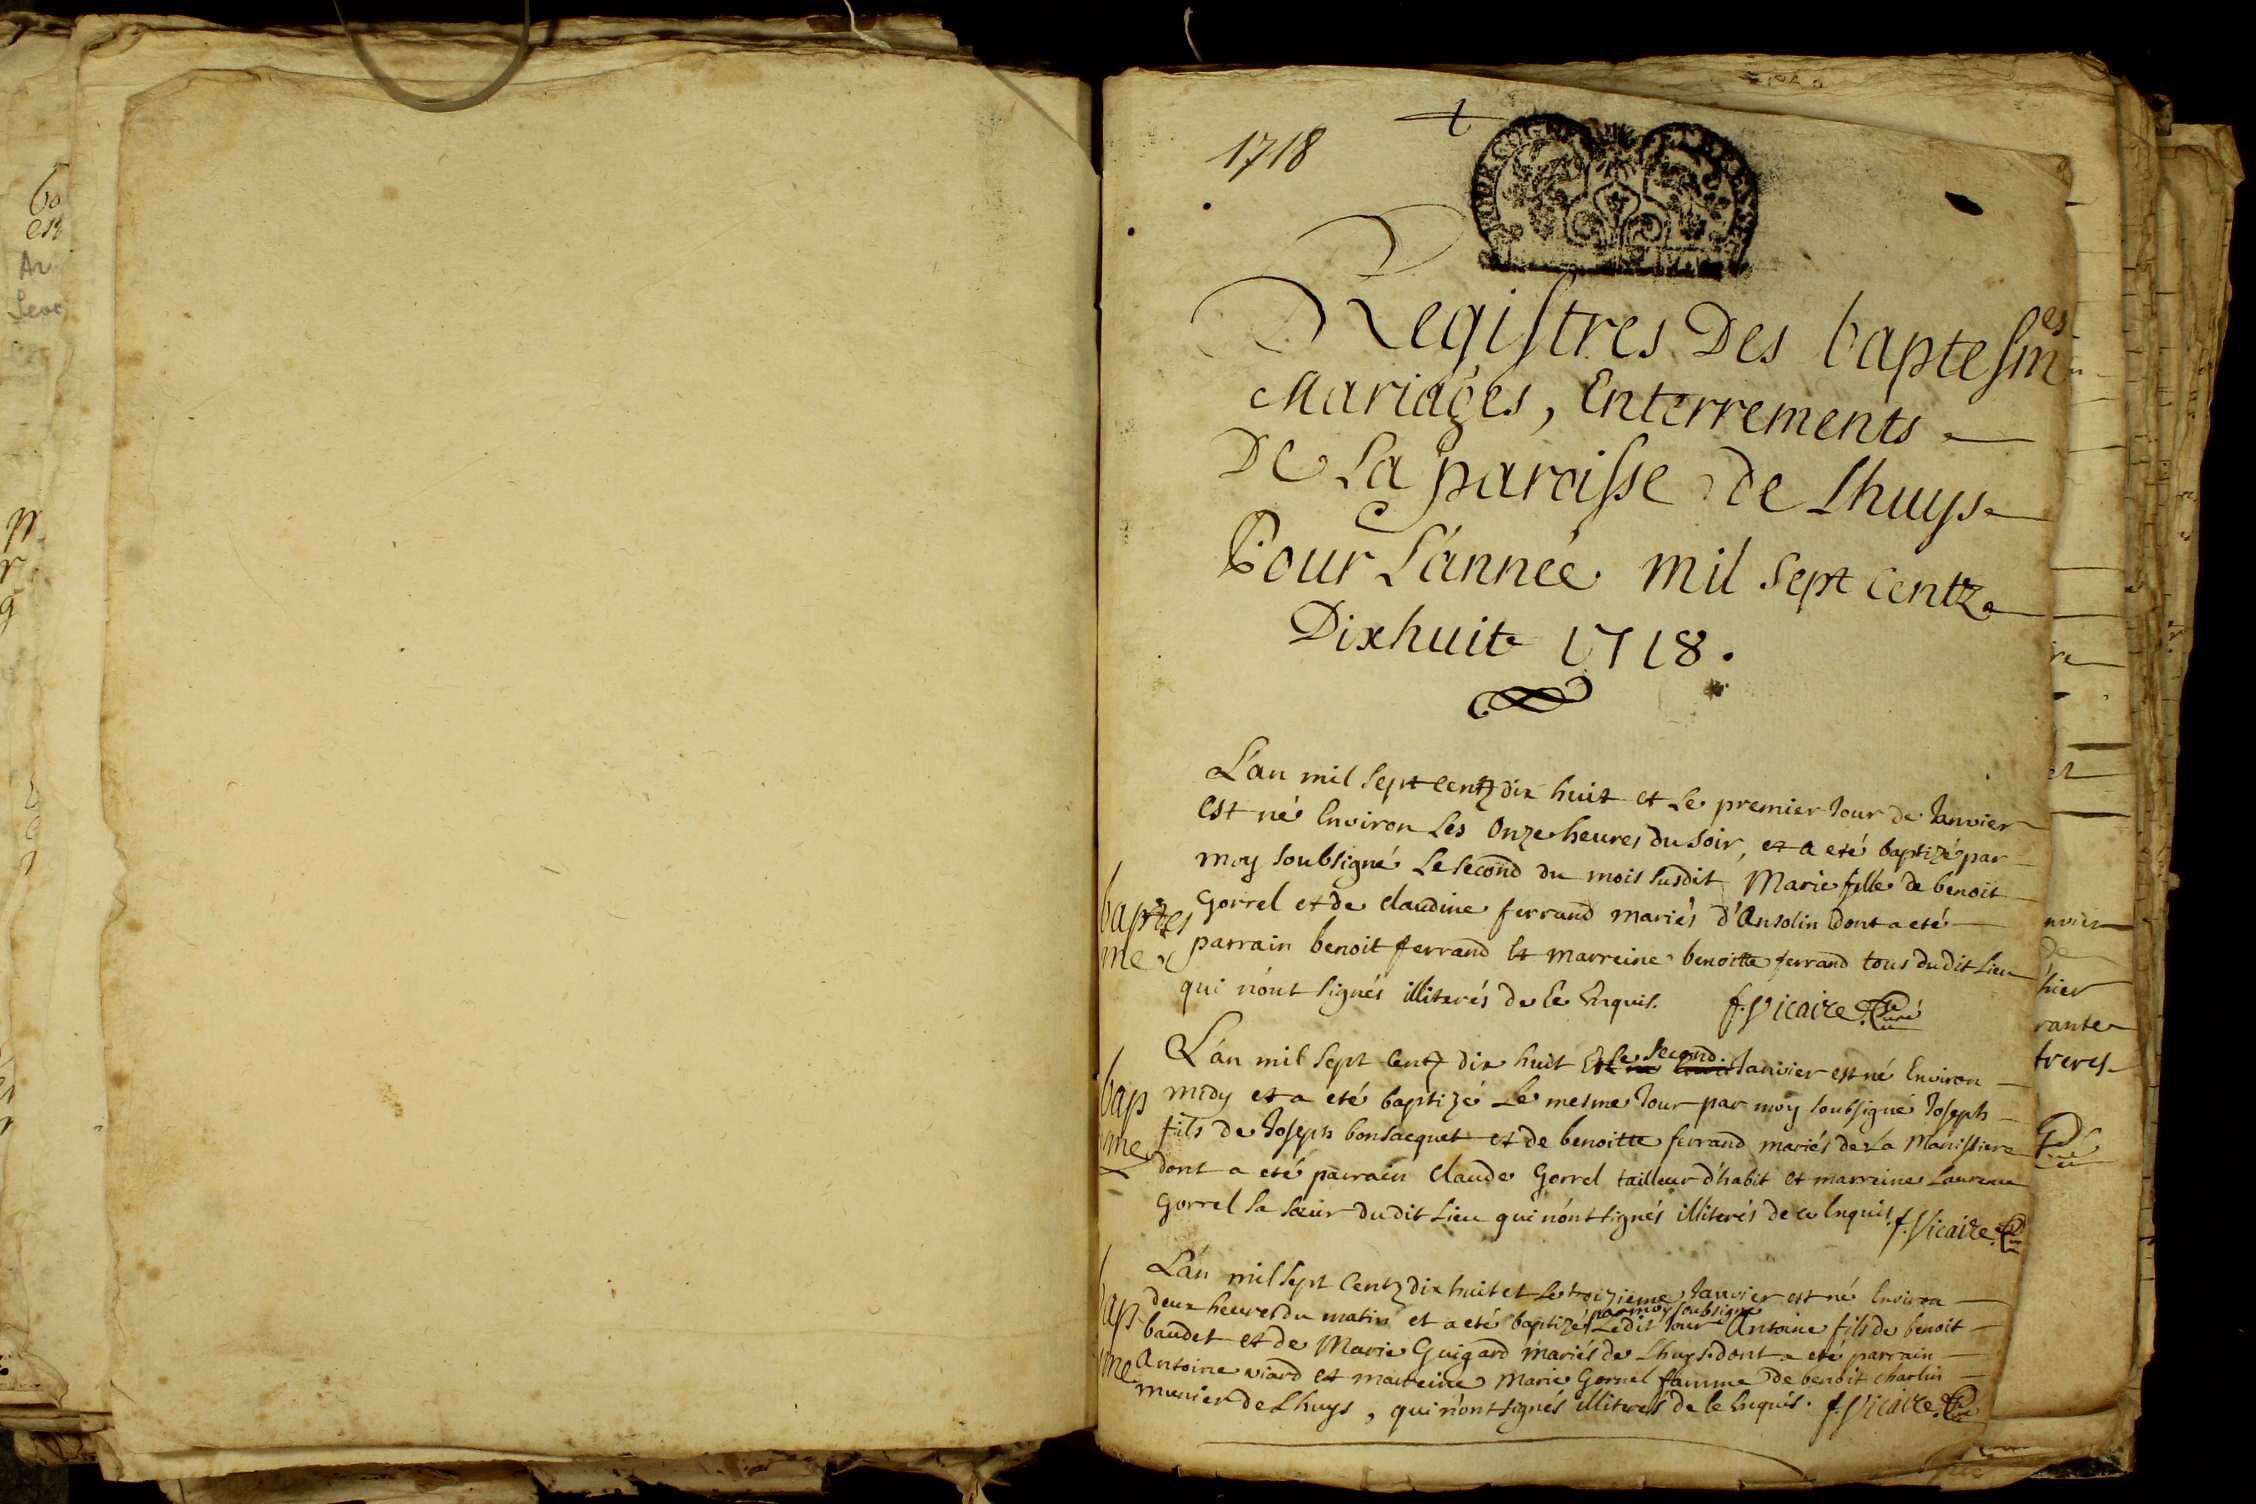 1718
Registres Des baptesmes
Mariages, Enterrements
De La paroisse de Lhuys
Pour L'année mil sept centz
Dixhuit 1718.
L'an mil sept centz dix huit et Le premier Jour de Janvier
est né Environ Les Onze heures du soir, et a eté baptizé par
moy soubsigné Le second du mois susdit Marie fille de benoit
baptes
Gorrel et de claudine ferrand mariés d'Ansolin dont a eté
me
parrain benoit ferrand et marreine benoitte ferrand tous dudit Lieu
qui n'ont signés illiterés de ce Enquis. f. Vicaire Curé
L'an mil sept centz dix huit et Le second Janvier est né Environ
bap
midy et a eté baptizé Le mesme Jour par moy soubsigné Joseph
fils de Joseph bonsacquet et de benoitte ferrand mariés de La Manissiere
me
dont a eté parrain Claude Gorrel tailleur d'habit et marreine Laurence
Gorrel sa sœur dudit Lieu qui n'ont signés illiterés de ce Enquis. f. Vicaire
L'an mil sept Centz dix huit et Le troizieme Janvier est né Environ
bap
deux heures du matin et a eté baptizé par moy soubsigné Ledit Jour Antoine fils de benoit
baudet et de Marie Guigard mariés de Lhuys dont a eté parrain
me
Antoine viard et marreine Marie Gorrel famme de benoit charlin
munier de Lhuys, qui n'ont signés illiterés de ce Enquis. f. Vicaire Curé